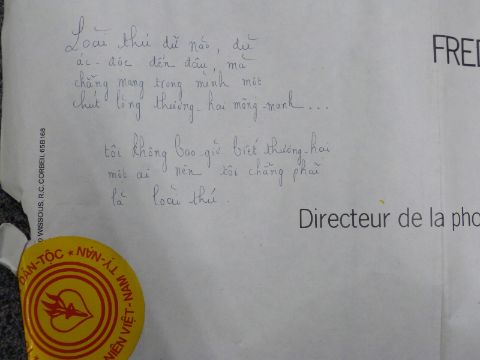 Loài thú dữ nào, dù
ác-độc đến đâu, mà
chẳng mang trong mình một
chút lòng thương-hại mỏng-manh...
tôi không bao-giờ biết thương-hại
một ai nên tôi chẳng phải
là loài thú.
FRED
Directeur de la pho
WISSOUS. R.C. CORBEIL 65B168
DÂN-TỘC * NẠN-TỴ NAM-VIỆT NIÊN